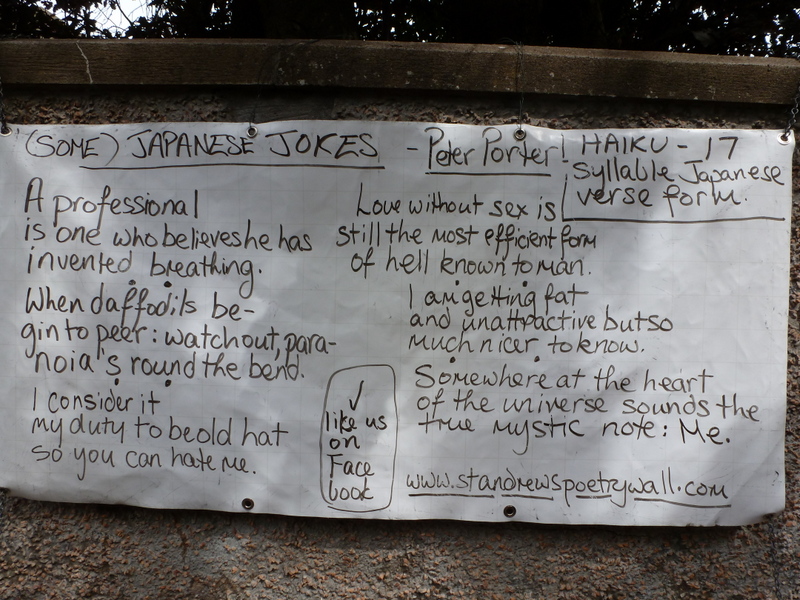 (SOME) JAPANESE JOKES - Peter Porter!
HAIKU - 17
Syllable Japanese
verse form.
A professional
is one who believes he has
invented breathing.
When daffodils be-
gin to peer: watch out, para-
noia's round the bend.
I consider it
my duty to be old hat
so you can hate me.
Love without sex is
still the most efficient form
of hell known to man.
I am getting fat
and unattractive but so
much nicer to know.
Somewhere at the heart
of the universe sounds the
true mystic note: Me.
✓
like us
on
Face
book
www.standrewspoetrywall.com